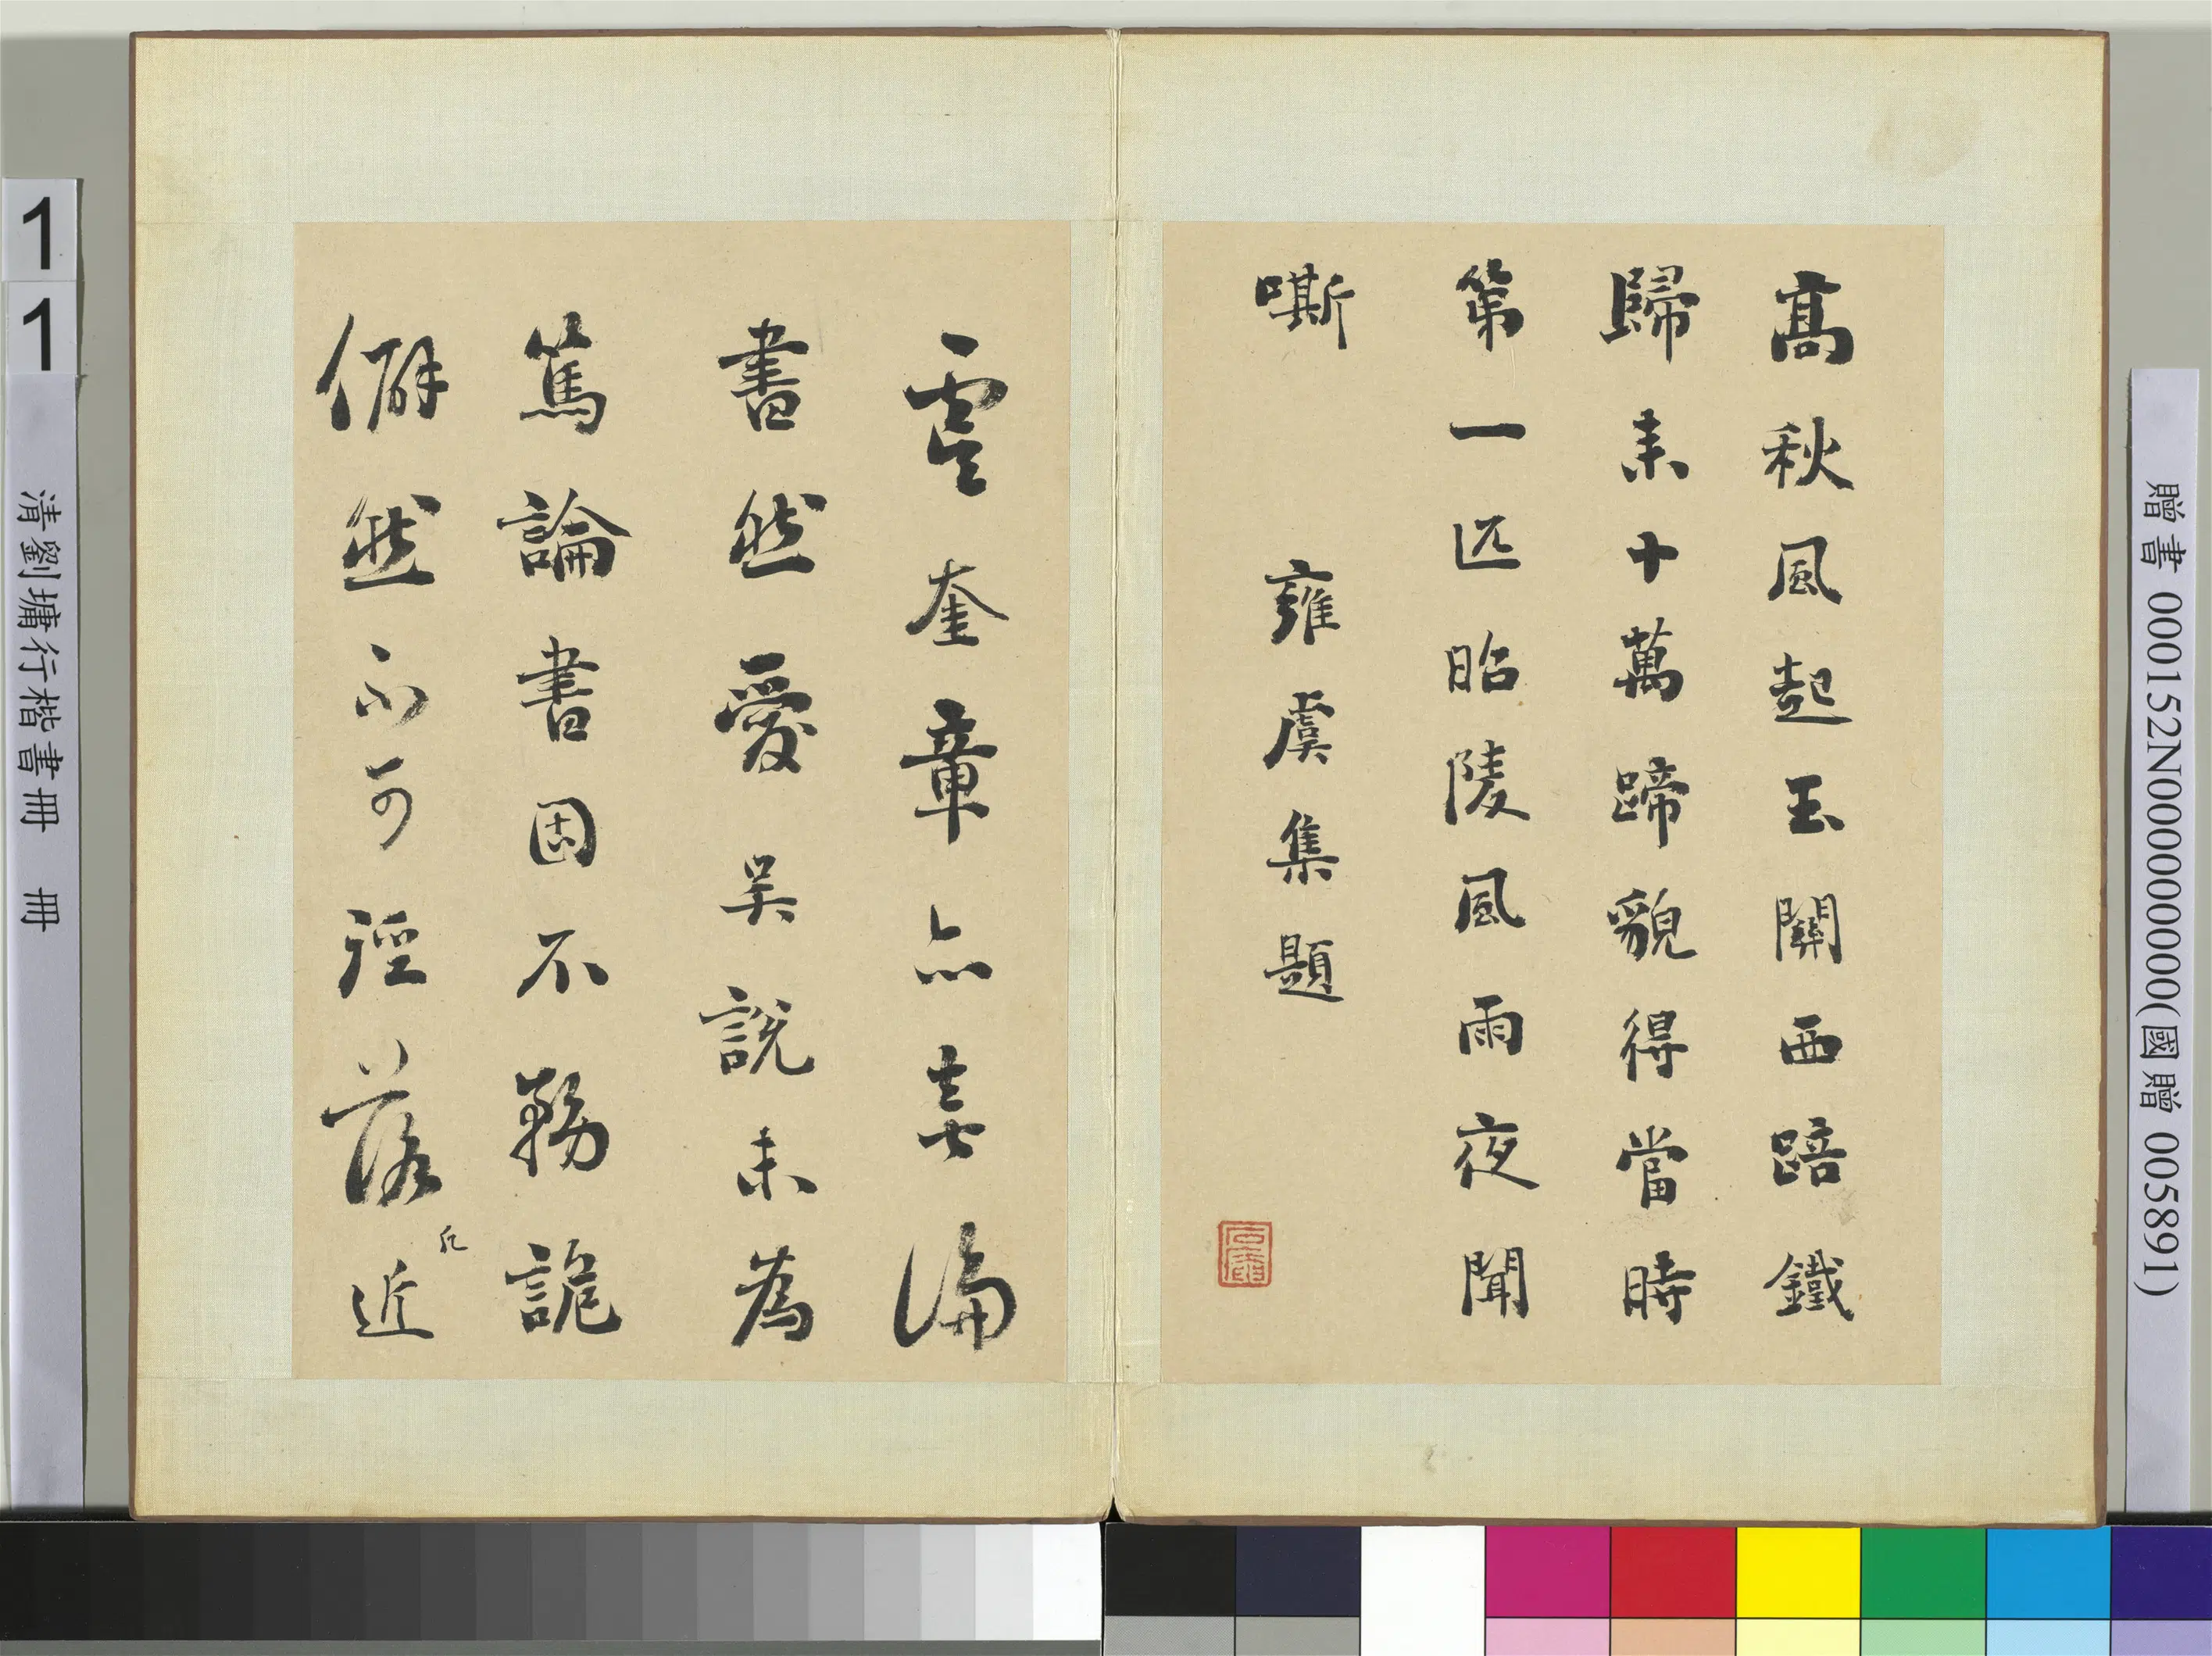 高秋風起玉關西踣鐵
歸來十萬蹄貌得當時
第一匹昭陵風雨夜聞
嘶　雍虞集題
石庵
虞奎章亦喜論
書然愛吳說未為
篤論書固不務詭
僻然不可徑落
近
11
清劉墉行楷書冊 冊
贈書 000152N000000000(國贈 005891)